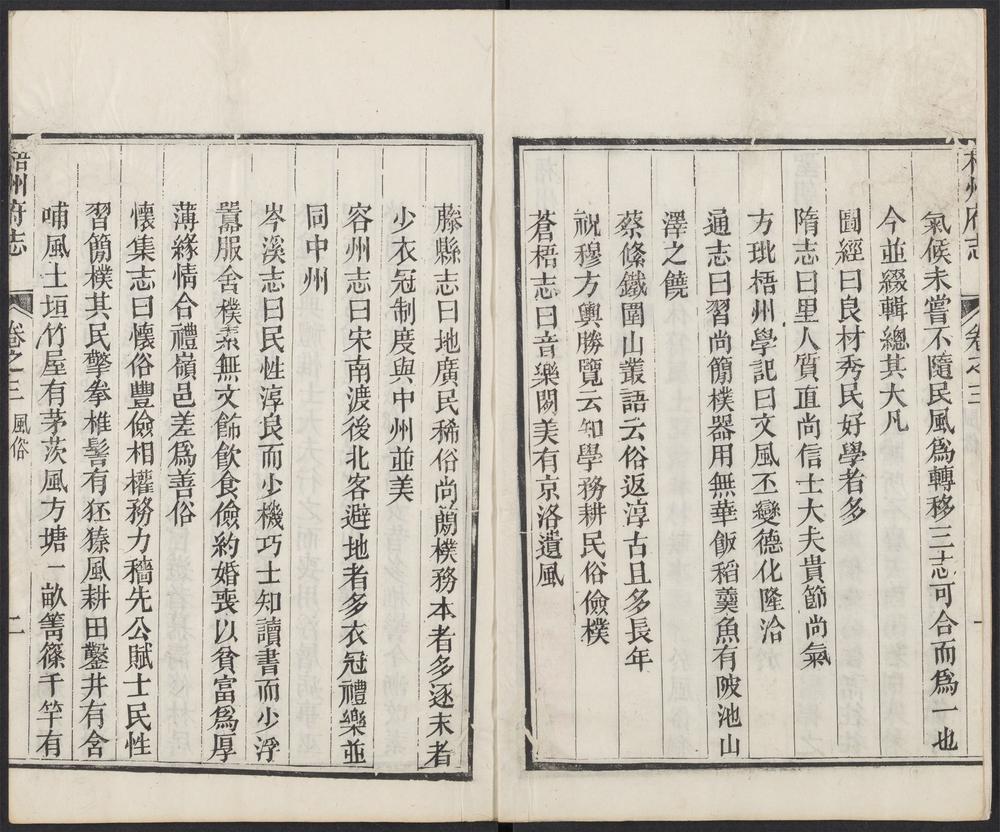 梧州府志 卷之三
氣候未嘗不隨民風爲轉移三志可合而爲一也
今並綴輯總其大凡
圖經曰良材秀民好學者多
隋志曰里人質直尚信士大夫貴節尚氣
方玭梧州學記曰文風丕變德化隆洽
通志曰習尚簡樸器用無華飯稻羹魚有陂池山
澤之饒
蔡絛鐵圍山叢語云俗返淳古且多長年
祝穆方輿勝覽云知學務耕民俗儉樸
蒼梧志曰音樂閎美有京洛遺風
藤縣志曰地廣民稀俗尚簡樸務本者多逐末者
少衣冠制度與中州並美
容州志曰宋南渡後北客避地者多衣冠禮樂並
同中州
岑溪志曰民性淳良而少機巧士知讀書而少浮
囂服舍樸素無文飾飲食儉約婚喪以貧富爲厚
薄緣情合禮嶺邑差爲善俗
懷集志曰懷俗豐儉相權務力穡先公賦士民性
習簡樸其民擎拳椎髻有狉獉風耕田鑿井有含
哺風土垣竹屋有茅茨風方塘一畝篙篠千竿有
梧州府志 卷之三 風俗 二